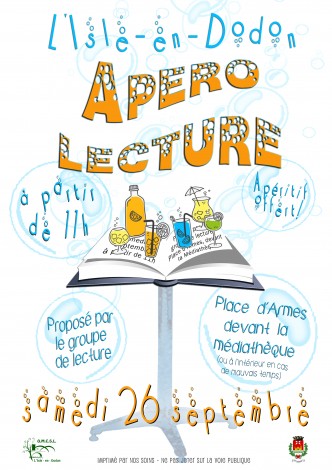 L'Isle-en-Dodon
APERO
LECTURE
à partir
de 11h
Apéritif
offert!
Proposé par
le groupe
de lecture
Place d'Armes
devant la
médiathèque
(ou à l'intérieur en cas
de mauvais temps)
samedi 26 septembre
IMPRIMÉ PAR NOS SOINS - NE PAS JETER SUR LA VOIE PUBLIQUE